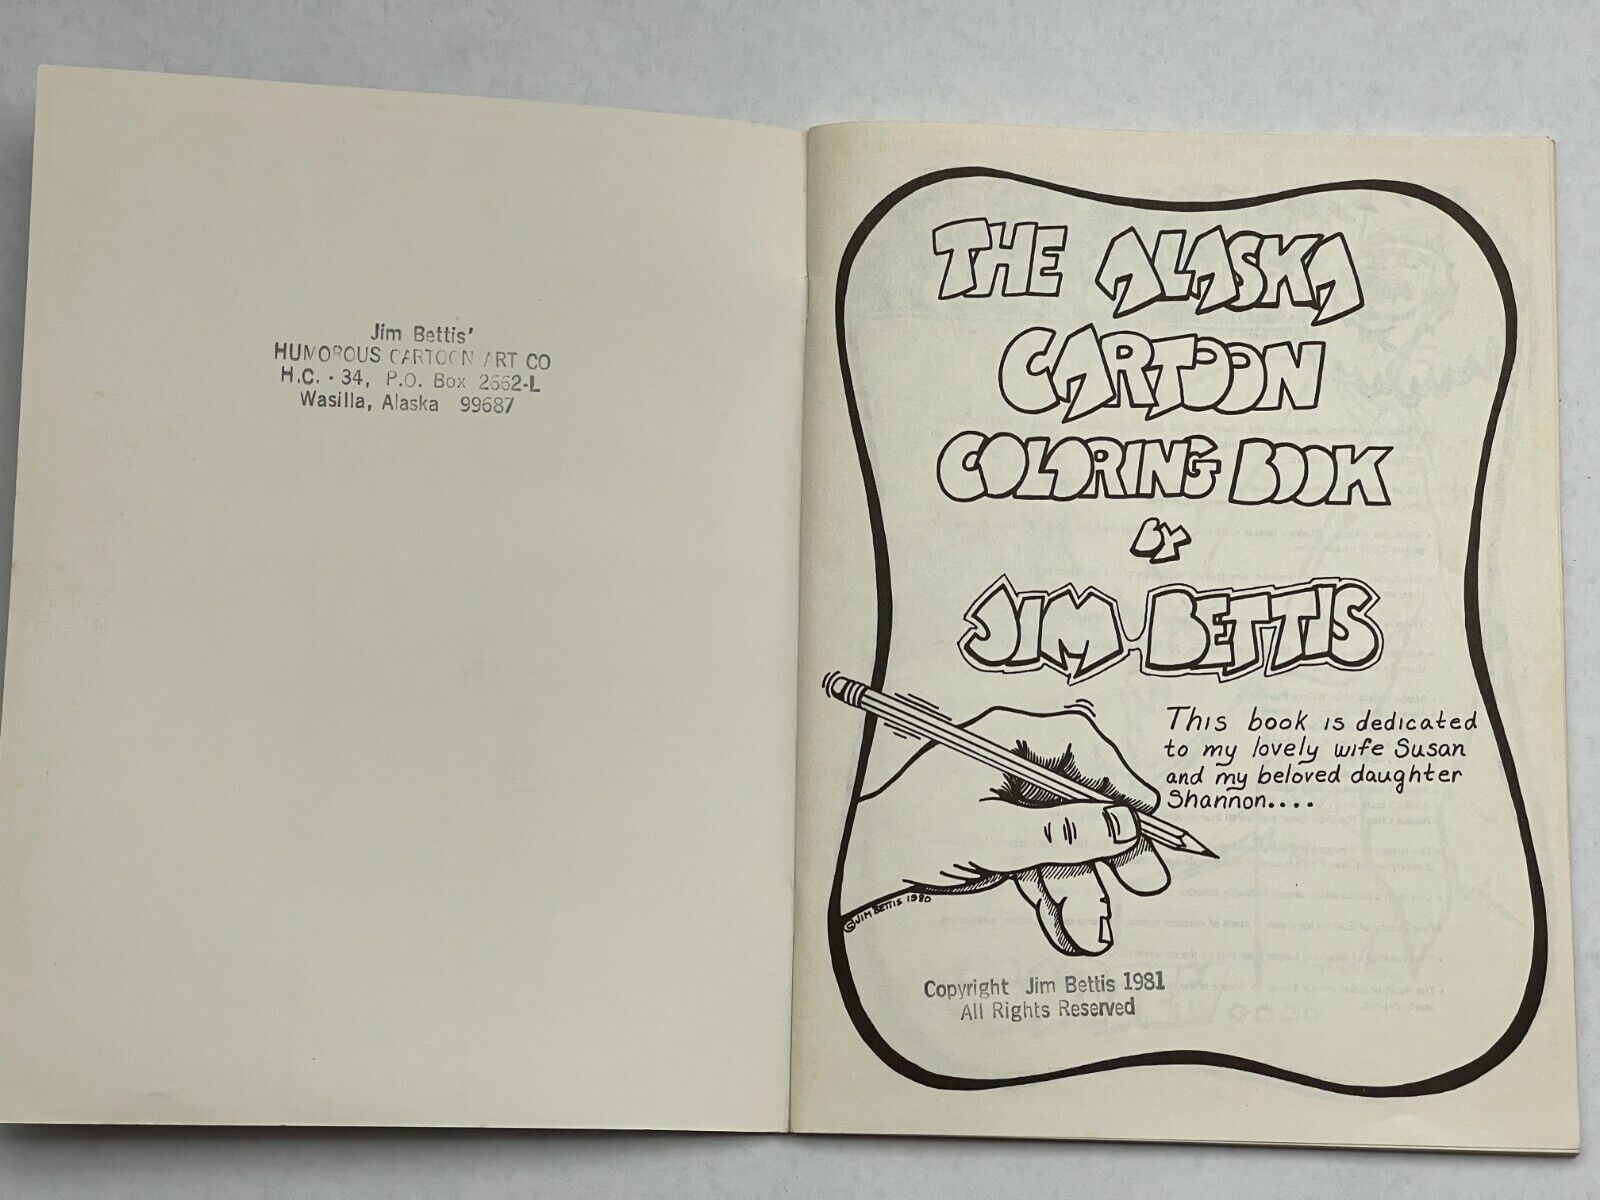 Jim Bettis'
HUMOROUS CARTOON ART CO
H.C. - 34, P.O. Box 2662-L
Wasilla, Alaska 99687
THE ALASKA
CARTOON
COLORING BOOK
BY
JIM BETTIS
This book is dedicated
to my lovely wife Susan
and my beloved daughter
Shannon....
©JIM BETTIS 1980
Copyright Jim Bettis 1981
All Rights Reserved